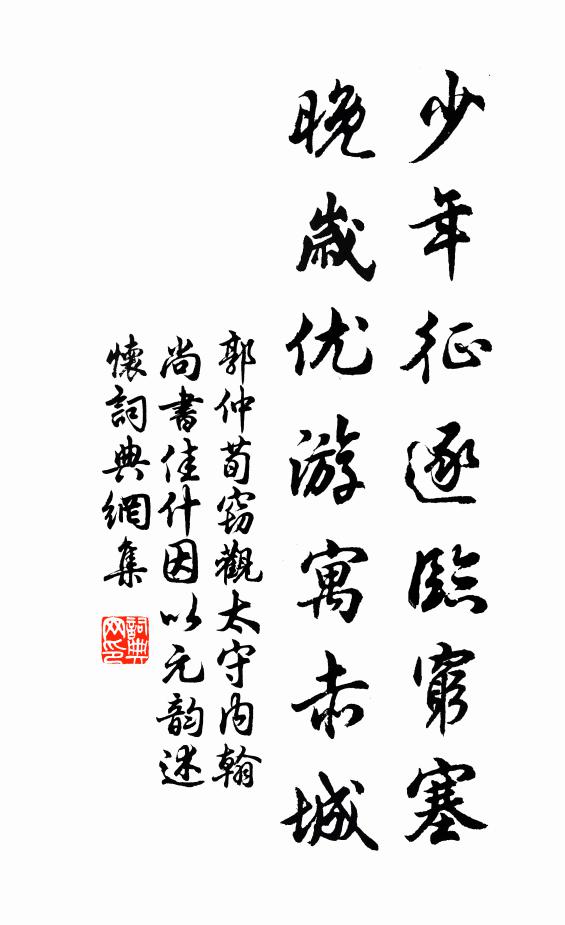 少年征逐臨窮塞
晚歲优游寓赤城
郭仲荀窃觀太守内翰
尚書佳什因以元韵述
懷詞典網集
詞典
网印